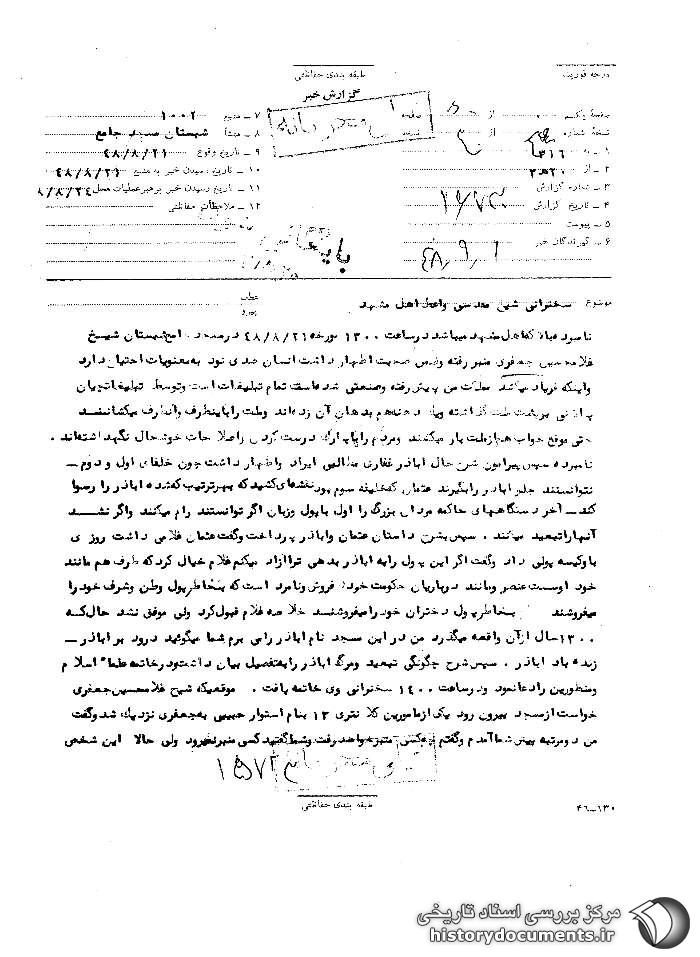 درجه فوریت
طبقه بندی حفاظتی
گزارش خبر
صفحه یکم از صفحه ۷ – منبع ۱۰۰۲
نسخه شماره از ۳ نسخه ۸ – منشأ شبستان مسجد جامع
۱ – به ۳۱۶ ۹ – تاریخ وقوع ۴۸/۸/۲۱
۲ – از ۱۰ – تاریخ رسیدن خبر به منبع ۴۸/۸/۲۱
۳ – شماره گزارش ۱۱ – تاریخ رسیدن خبر برهبر عملیات محل ۸/۸/۲۴
۴ – تاریخ گزارش ۱۲ – ملاحظات حفاظتی
۵ – پیوست
۶ – گیرندگان خبر ۴۸٫۹٫۱
بایگانی
موضوع سخنرانی شیخ مقدسی واعظ اهل مشهد
عطف
پیرو
نامبرده بالا که اهل مشهد میباشد در ساعت ۱۳۰۰ مورخه ۴۸/۸/۲۱ در مسجد جامع شبستان شیخ
غلامحسین جعفری منبر رفته وضمن صحبت اظهار داشت انسان صدی نود به معنویات احتیاج دارد
واینکه فریاد میکشد مملکت من پیش رفته وصنعتی شده است تمام تبلیغات است وتوسط تبلیغاتچیان
پالانی بر پشت ملت گذاشته ویک دهنه هم بدهان آن زده‌اند وملت را باینطرف وآنطرف میکشانند
حتی موقع خواب هم از ملت بار میکشند ومردم را با پارک درست کردن و اصلاحات خوشحال نگهداشته‌اند .
نامبرده سپس پیرامون شرح حال اباذر غفاری مطالبی ایراد واظهار داشت چون خلفای اول و دوم –
نتوانستند جلو اباذر را بگیرند عثمان که خلیفه سوم بود نقشه‌ای کشید که بهر ترتیب که شده اباذر را رسوا
کند – آخر دستگاههای حاکمه مردان بزرگ را اول با پول وزبان اگر توانستند رام میکنند واگر نشد
آنها را تبعید میکنند . سپس بشرح داستان عثمان واباذر پرداخت وگفت عثمان غلامی داشت روزی
باو کیسه پولی داد وگفت اگر این پول را به اباذر بدهی ترا آزاد میکنم غلام خیال کرد که طرف هم مانند
خود اوست عنصر ومانند درباریان حکومت خود فروش ونامرد است که بخاطر پول وطن وشرف خود را
میفروشند بخاطر پول دختران خود را میفروشند خلاصه غلام قبول کرد ولی موفق نشد حال که
۱۳۰۰ سال از آن واقعه میگذرد من در این مسجد نام اباذر را می برم شما میگوئید درود بر اباذر –
زنده باد اباذر . سپس شرح چگونگی تبعید ومرگ اباذر را به تفصیل بیان داشت ودر خاتمه علماء اسلام
ومنظورین را دعا نمود ودر ساعت ۱۴۰۰ سخنرانی وی خاتمه یافت . موقعیکه شیخ غلامحسین جعفری
خواست از مسجد بیرون رود یکی از مامورین کلانتری ۱۳ بنام استوار حبیبی به جعفری نزدیک شد وگفت
من دو مرتبه پیش شما آمدم وگفتم چه کسی منبر خواهد رفت وشما گفتید کسی منبر نمیرود ولی حالا این شخص
۱۵۷۲۳
طبقه بندی حفاظتی
۴۶–۱۳۰
مرکز بررسی اسناد تاریخی
historydocuments.ir